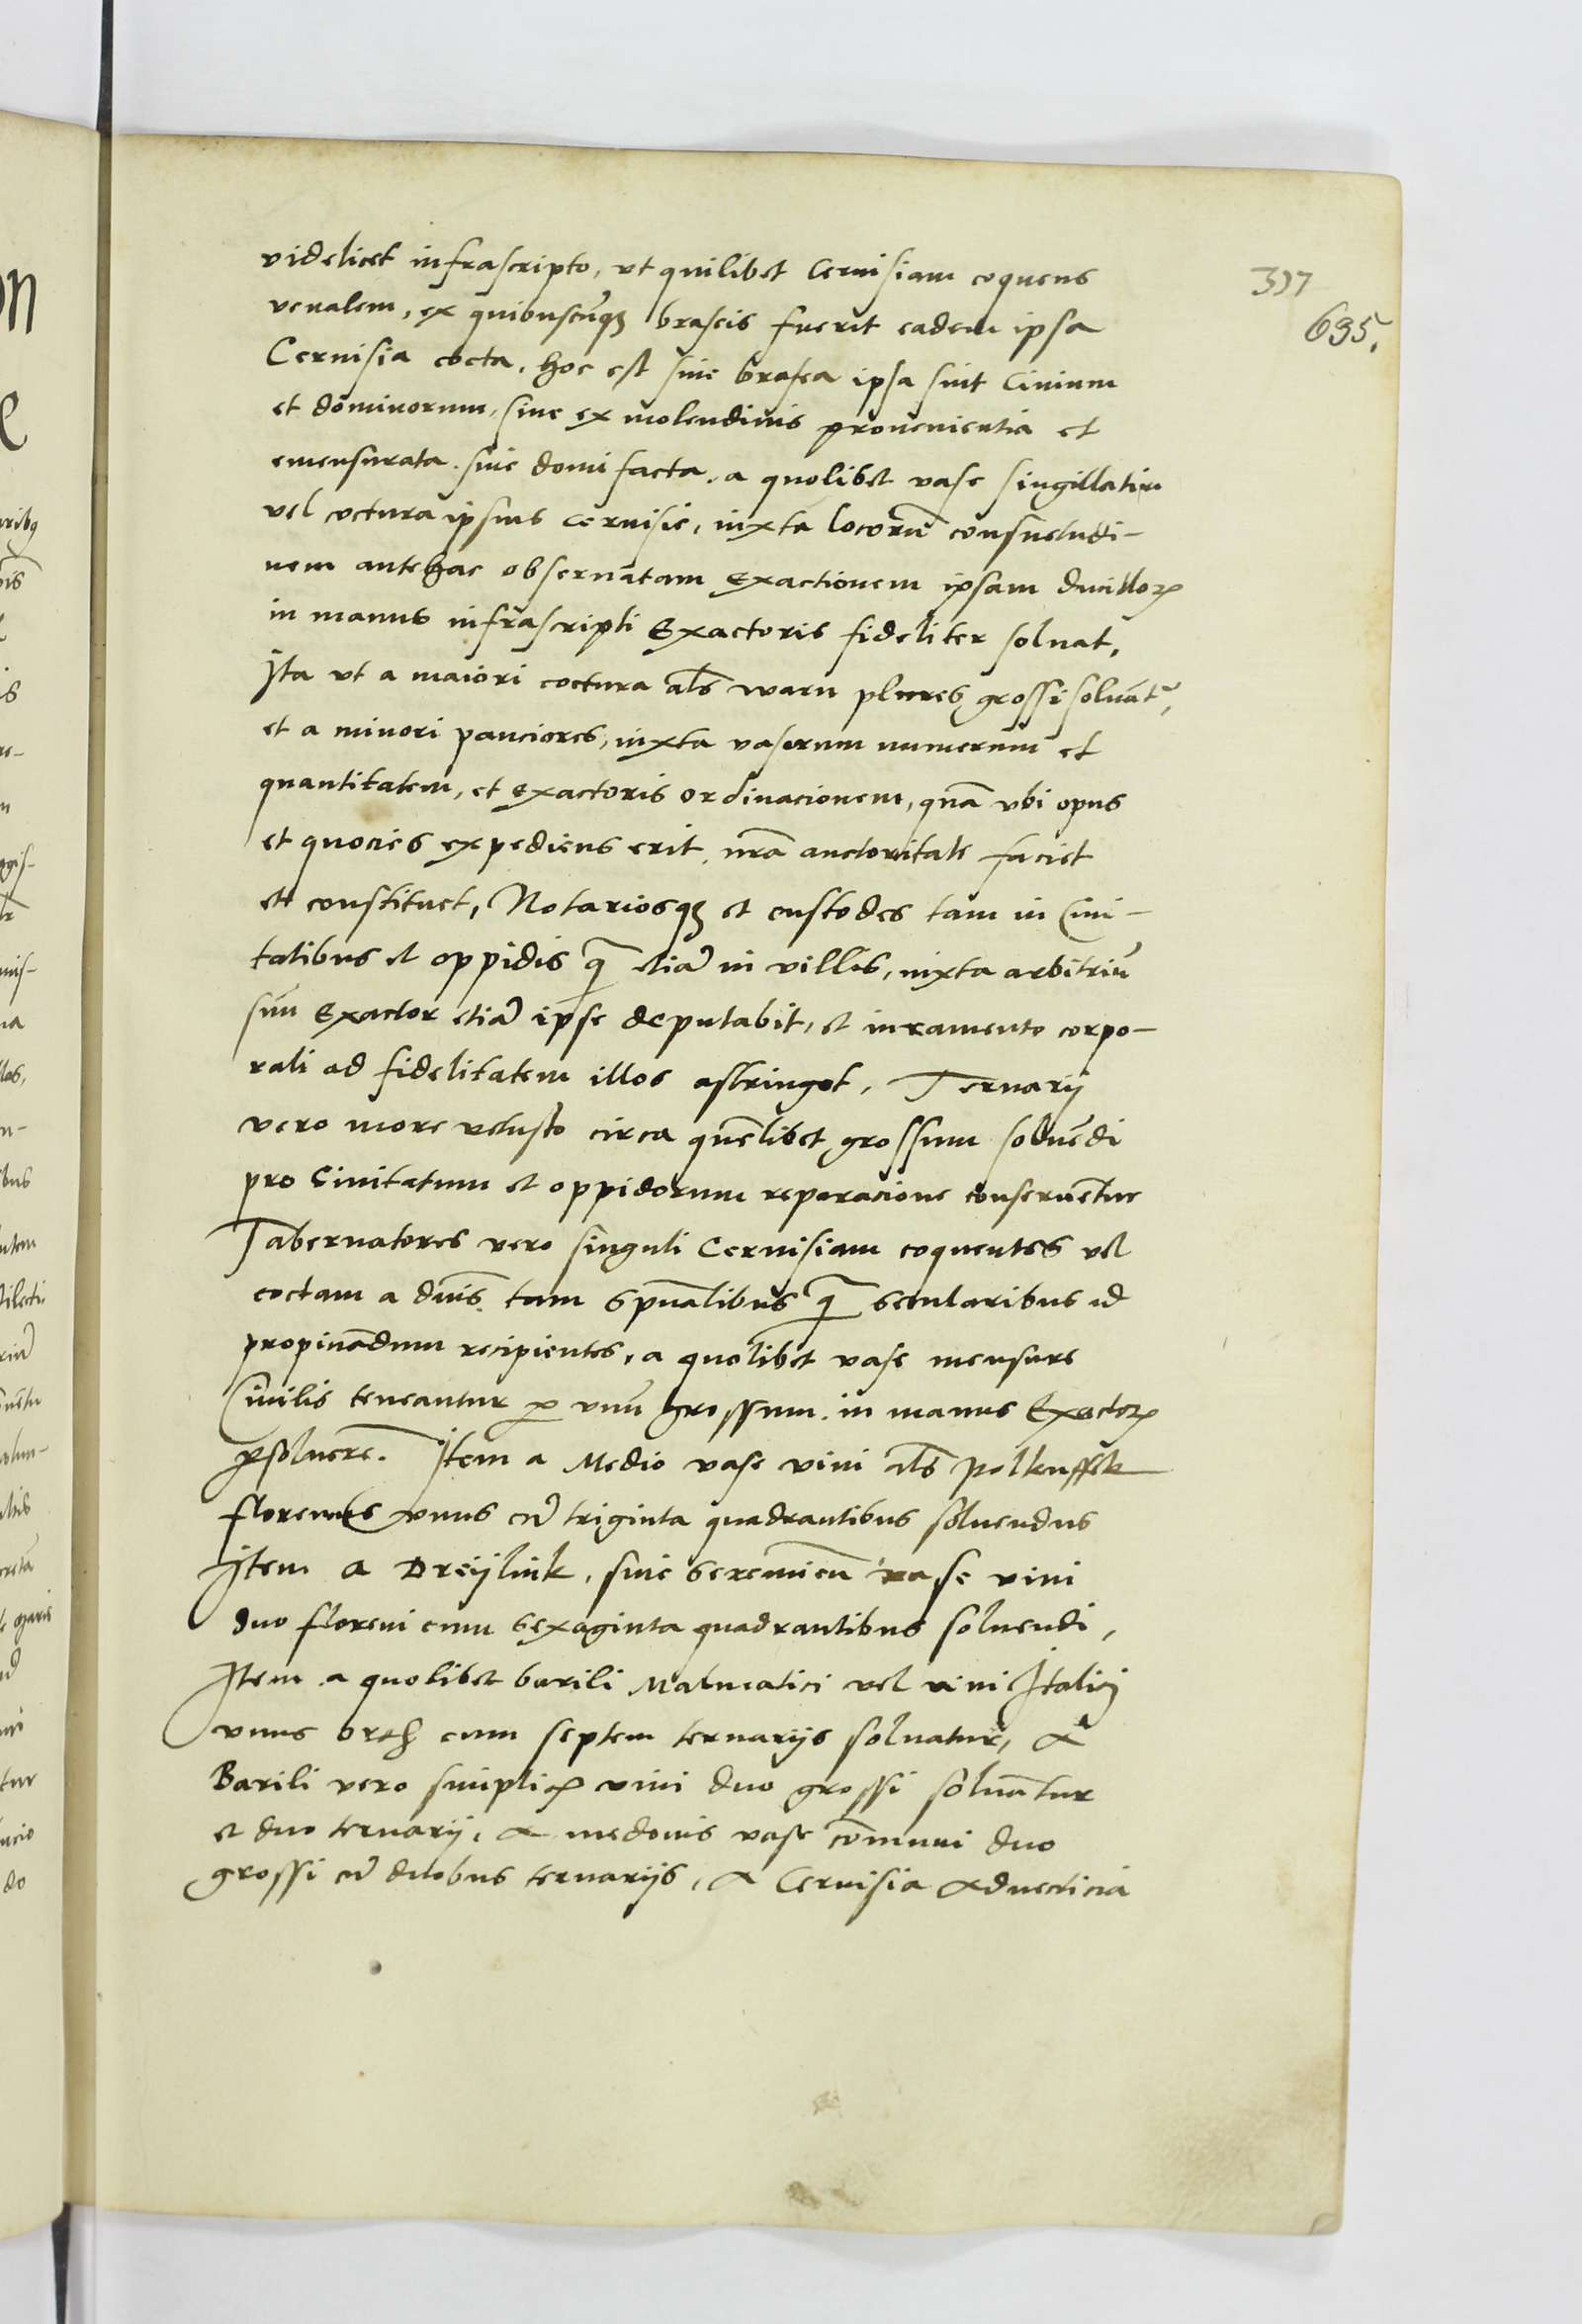 337
695.
videlicet infrascripto, vt quilibet Ceruisiam coquens
venalem, ex quibuscūqꝫ braseis fuerit eadem ipsa
Ceruisia cocta, hoc est siue brasea ipsa sint Ciuium
et dominorum, siue ex molendinis prouenientia et
emensurata. siue domi facta, a quolibet vase singillatim
vel coctura ipsius ceruisie, iuxta locorū consuetudi-
nem antehac obseruatam exactionem ipsam ducilloꝝ
in manus infrascripti Exactoris fideliter soluat,
Ita vt a maiori coctura als waru plures grossi soluāt᷑,
et a minori pauciores, iuxta vasorum numerum et
quantitatem, et exactoris ordinacionem, quā vbi opus
et quocies expediens erit, nr̄a auctoritate faciet
et constituet, Notariosqꝫ et custodes tam in Ciui-
tatibus et oppidis q̄ etiā in villis, iuxta arbitriū
suū Exactor etiā ipse deputabit, et iuramento corpo-
rali ad fidelitatem illos astringet, Ternarij
vero more vetusto circa quēlibet grossum soluēdi
pro Ciuitatum et oppidorum reparacione conseruētur
Tabernatores vero singuli Ceruisiam coquentes vel
coctam a dnīs tam spūalibus q̄ secularibus ad
propinādum recipientes, a quolibet vase mensure
Ciuilis teneantur ꝑ vnū grossum in manus Exactoꝝ
ꝑsoluere. Item a Medio vase vini als polkuffek
florenus vnus cū triginta quadrantibus soluendus
Item a Dreijlink, siue seremieū vase vini
duo floreni cum sexaginta quadrantibus soluendi,
Item a quolibet barili Maluatici vel vini Italicj
vnus orth cum septem ternarijs soluatur, A
Barili vero simplicꝭ vini duo grossi soluātur
et duo ternarij, A medonis vase cōmuni duo
grossi cū duobus ternarijs, A Ceruisia aduecticia